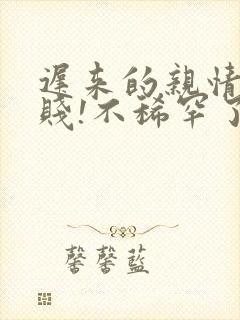 遲来的親情
賤!不稀罕了
馨馨藍